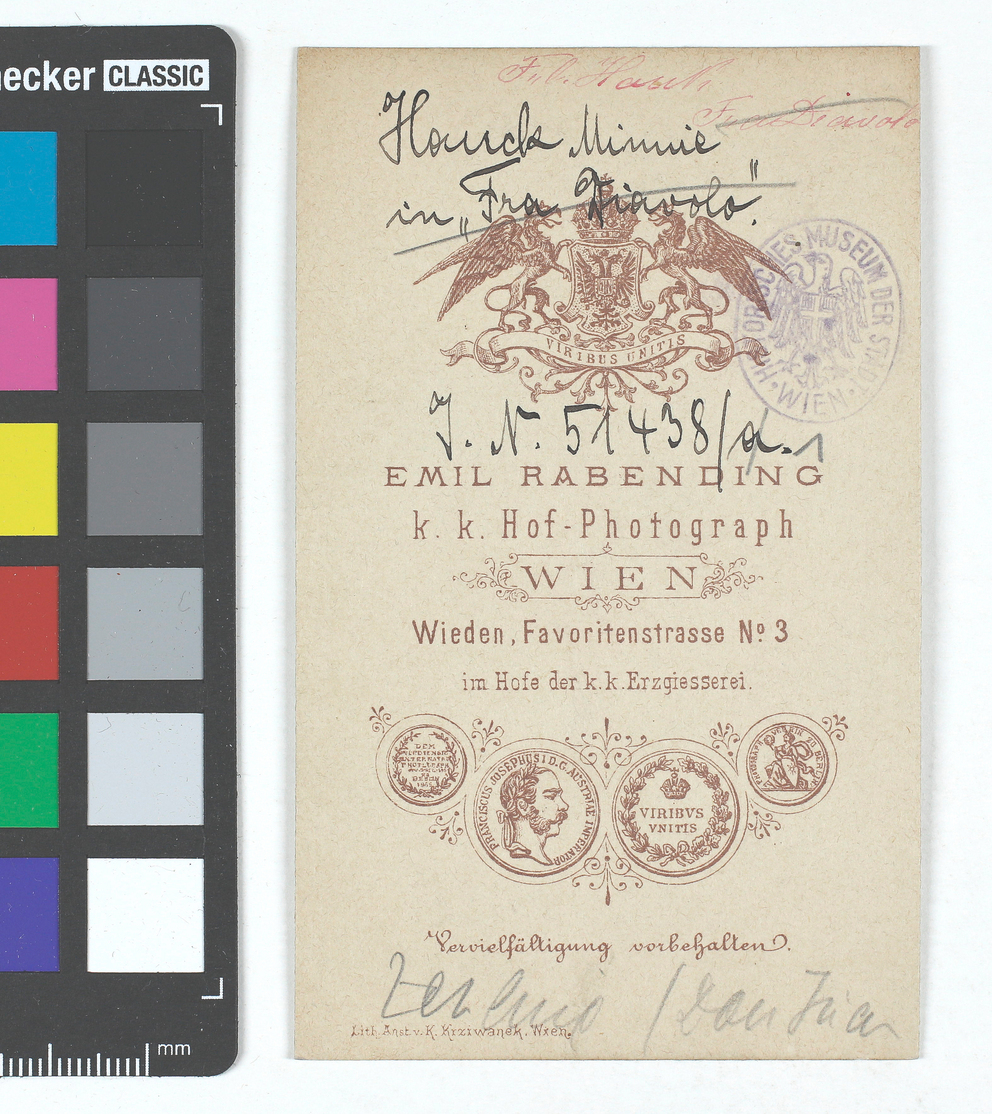 ecker CLASSIC
Frl. Hauck
Fra Diavolo
Hauck Minnie
in „Fra Diavolo."
VIRIBUS UNITIS
HISTORISCHES MUSEUM DER STADT WIEN
J. N. 51438/a. 1
EMIL RABENDING
k. k. Hof-Photograph
WIEN
Wieden, Favoritenstrasse Nº 3
im Hofe der k. k. Erzgiesserei.
FRANCISCUS JOSEPHUS I D. G. AUSTRIAE IMPERATOR
VIRIBVS
VNITIS
PHOTOGRAPH. VEREIN ZU BERLIN
Vervielfältigung vorbehalten.
Zerlina / Don Juan
Lith. Anst. v. K. Krziwanek, Wien.
mm